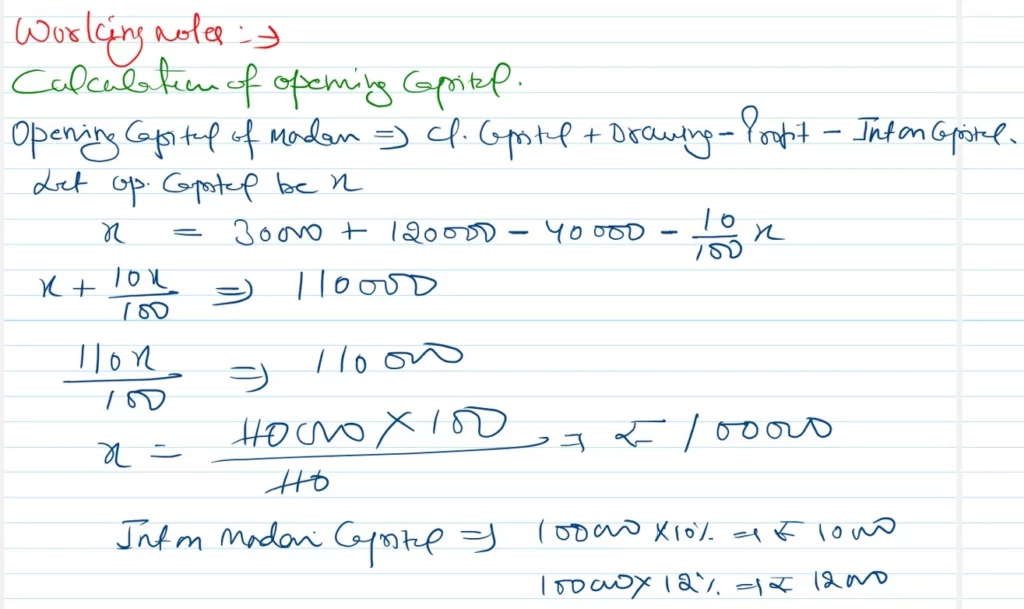 Working notes :→
Calculation of opening Capital.
Opening Capital of Madan ⇒ Cl. Capital + Drawing - Profit - Int on Capital.
Let op. Capital be x
x = 30000 + 120000 - 40000 - 10/100 x
x + 10x/100 ⇒ 110000
110x/100 ⇒ 110000
x = 110000 × 100 / 110 ⇒ ₹ 100000
Int on Madan Capital ⇒ 100000 × 10% ⇒ ₹ 10000
100000 × 12% ⇒ ₹ 12000